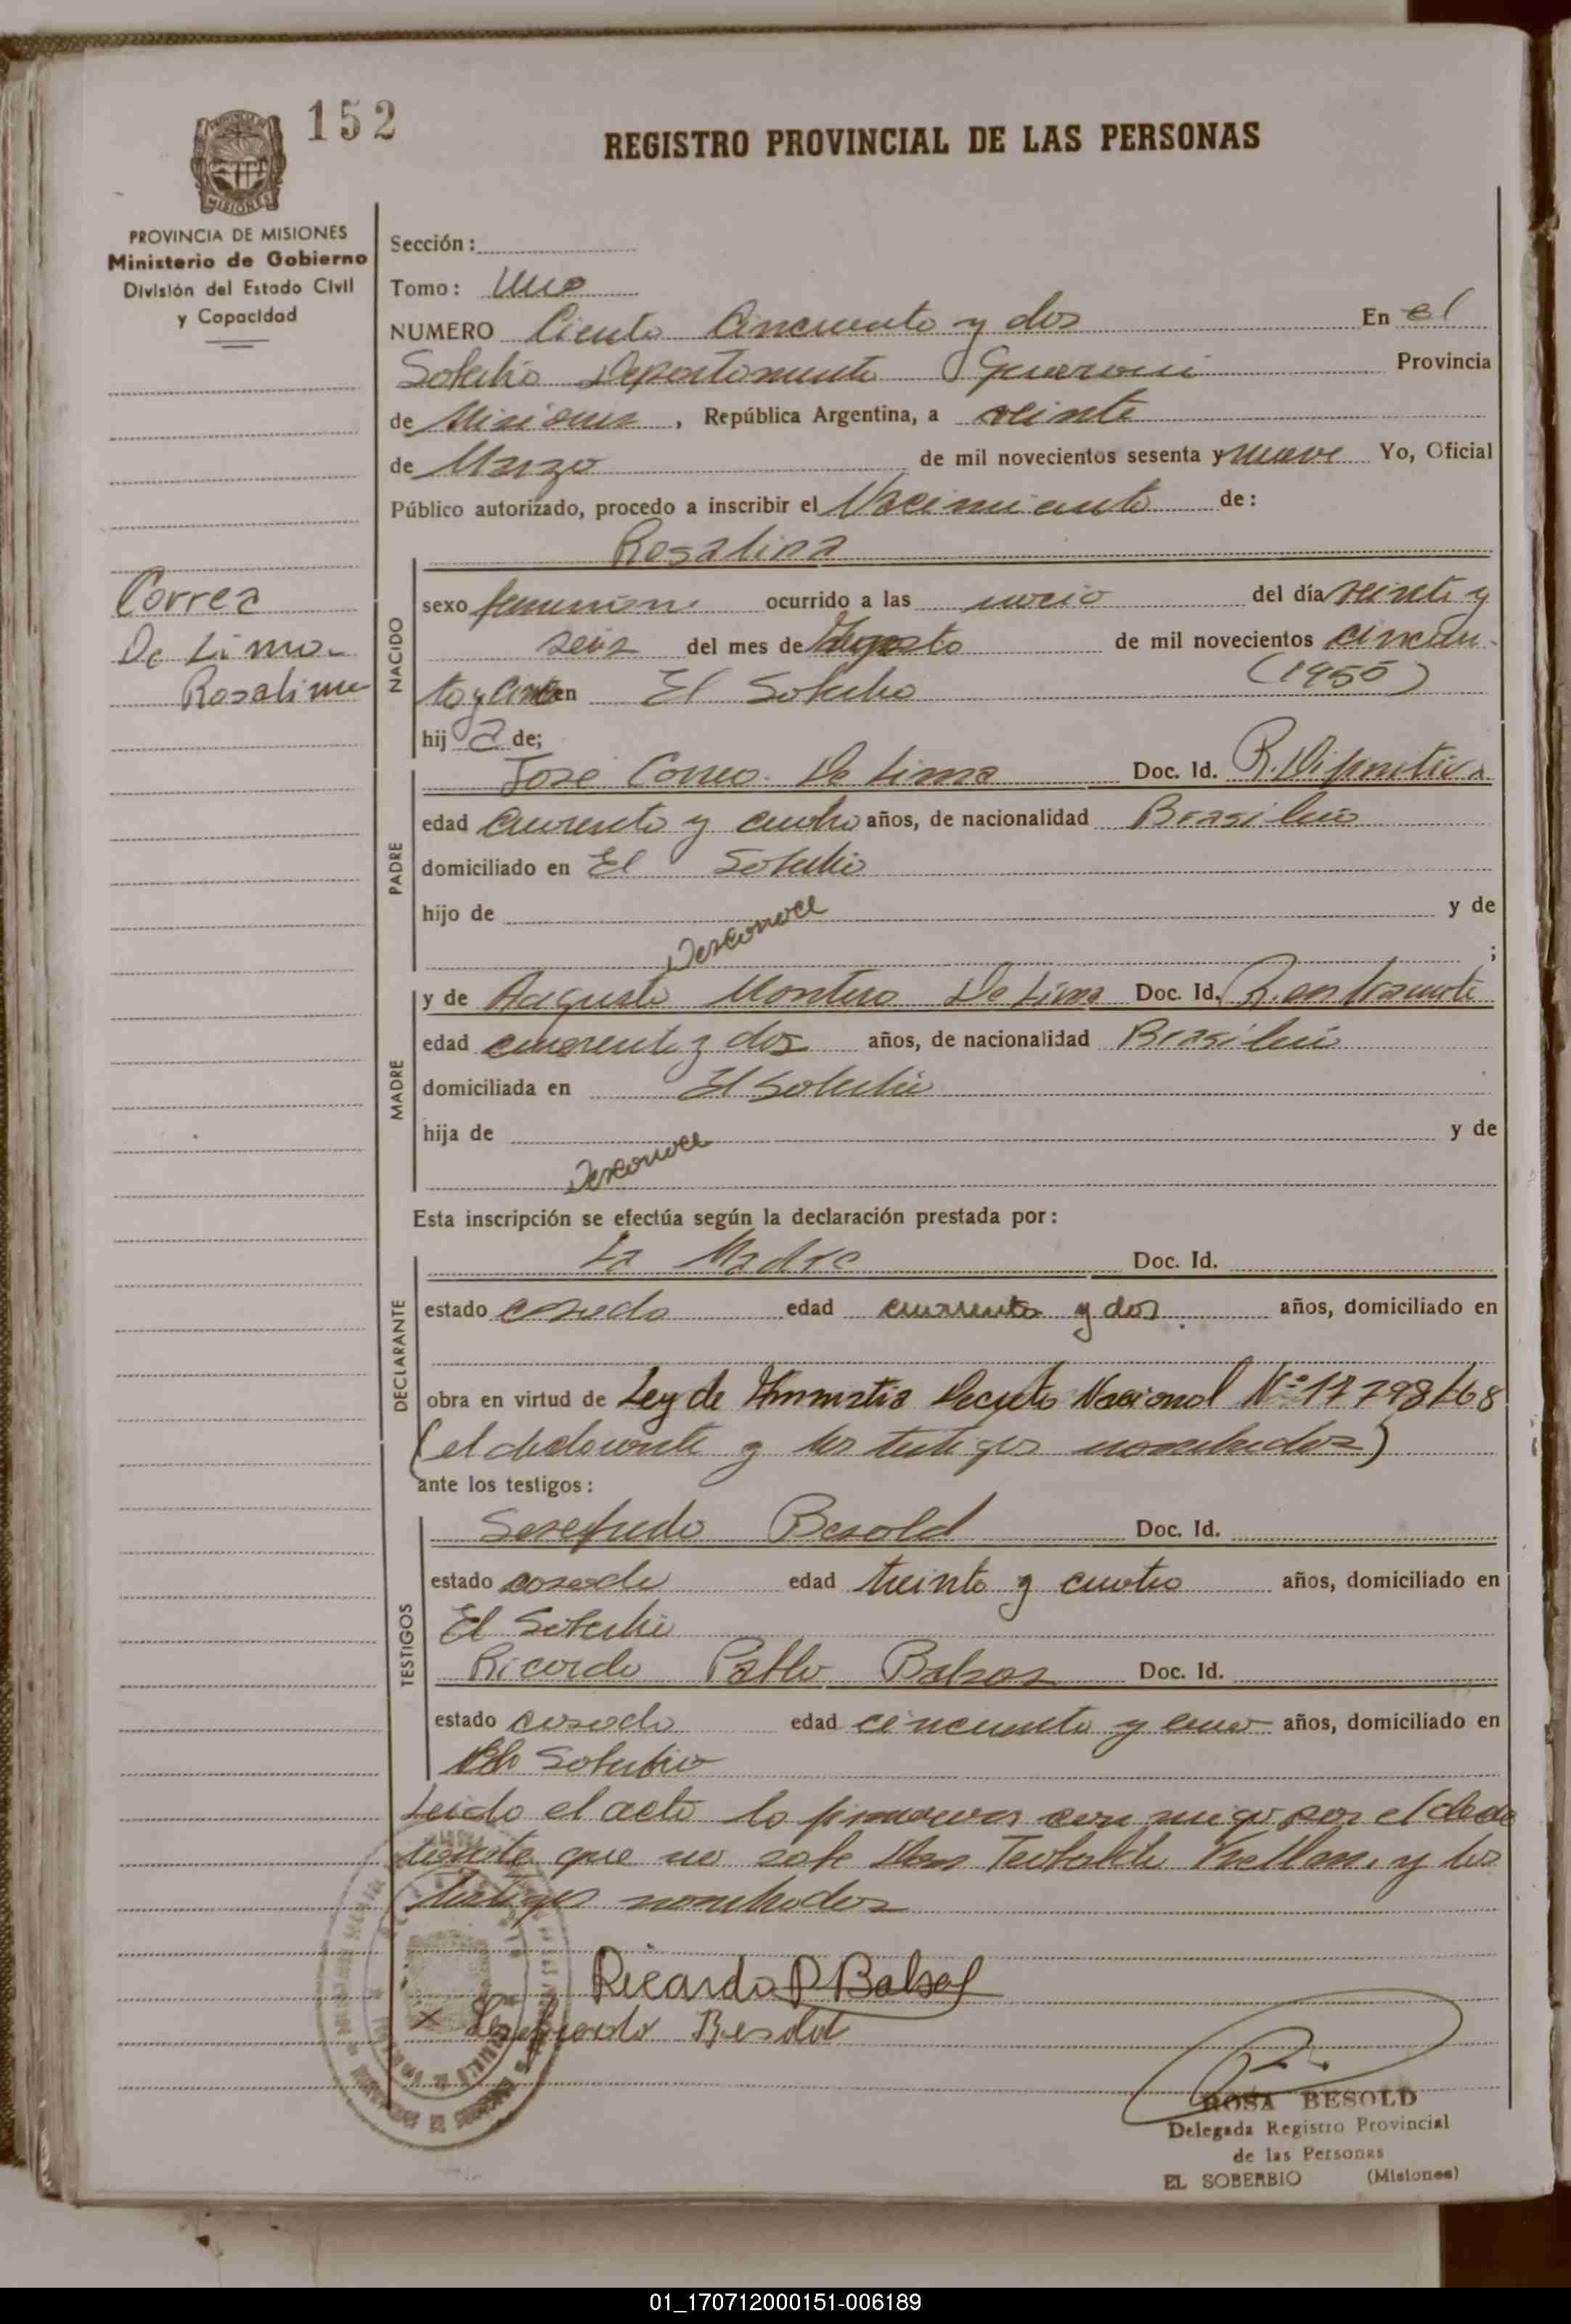 152
REGISTRO PROVINCIAL DE LAS PERSONAS
MISIONES
PROVINCIA DE MISIONES
Ministerio de Gobierno
División del Estado Civil
y Capacidad
Correa
De Lima
Rosalina
Sección:
Tomo: Uno
NUMERO Ciento Cincuenta y dos En el
Soberbio Departamento Guarani Provincia
de Misiones, República Argentina, a veinte
de Marzo de mil novecientos sesenta y nueve Yo, Oficial
Público autorizado, procedo a inscribir el Nacimiento de:
NACIDO
Rosalina
sexo femenino ocurrido a las del día veinte y
seis del mes de Agosto de mil novecientos cincuen-
ta y cinco en El Soberbio (1955)
hij a de;
PADRE
José Correa De Lima Doc. Id. R.
edad cuarenta y cuatro años, de nacionalidad Brasileño
domiciliado en El Soberbio
hijo de Desconoce y de
;
MADRE
y de Augusta De Lima Doc. Id. R.
edad cuarenta y dos años, de nacionalidad Brasileña
domiciliada en El Soberbio
hija de Desconoce y de
Esta inscripción se efectúa según la declaración prestada por:
DECLARANTE
La Madre Doc. Id.
estado casada edad cuarenta y dos años, domiciliado en
obra en virtud de Ley de Amnistia Decreto Nacional Nº 17798/68
(el declarante y los testigos nombrados)
ante los testigos:
TESTIGOS
Besold Doc. Id.
estado casado edad treinta y cuatro años, domiciliado en
El Soberbio
Ricardo Pablo Balsas Doc. Id.
estado casado edad cincuenta y uno años, domiciliado en
El Soberbio
Leido el acta la firmaron con migo por el decla
rante que no sabe Don Teobaldo y los
testigos nombrados
Ricardo P Balsas
x Besold
ROSA BESOLD
Delegada Registro Provincial
de las Personas
EL SOBERBIO (Misiones)
01_170712000151-006189